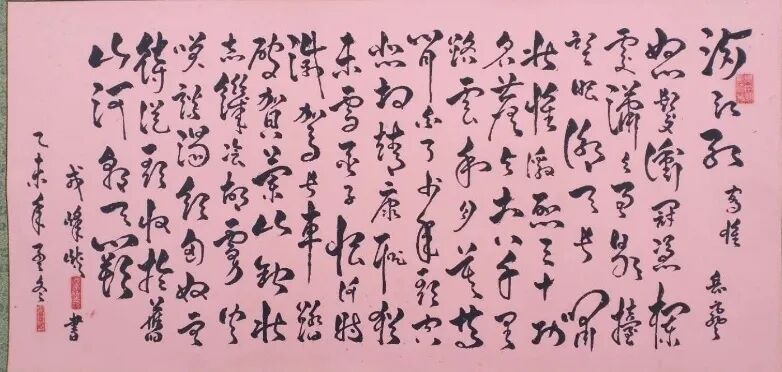 满江红 寫懷 岳飛
怒髮衝冠凭欄
處瀟瀟雨歇擡
望眼仰天長嘯
壯懷激烈三十功
名塵與土八千里
路雲和月莫等
閒白了少年頭空
悲切靖康耻猶
未雪臣子恨何時
滅駕長車踏
破賀蘭山缺壯
志饑餐胡虜肉
笑談渴飲匈奴血
待從頭收拾舊
山河朝天闕
書
乙未年孟冬